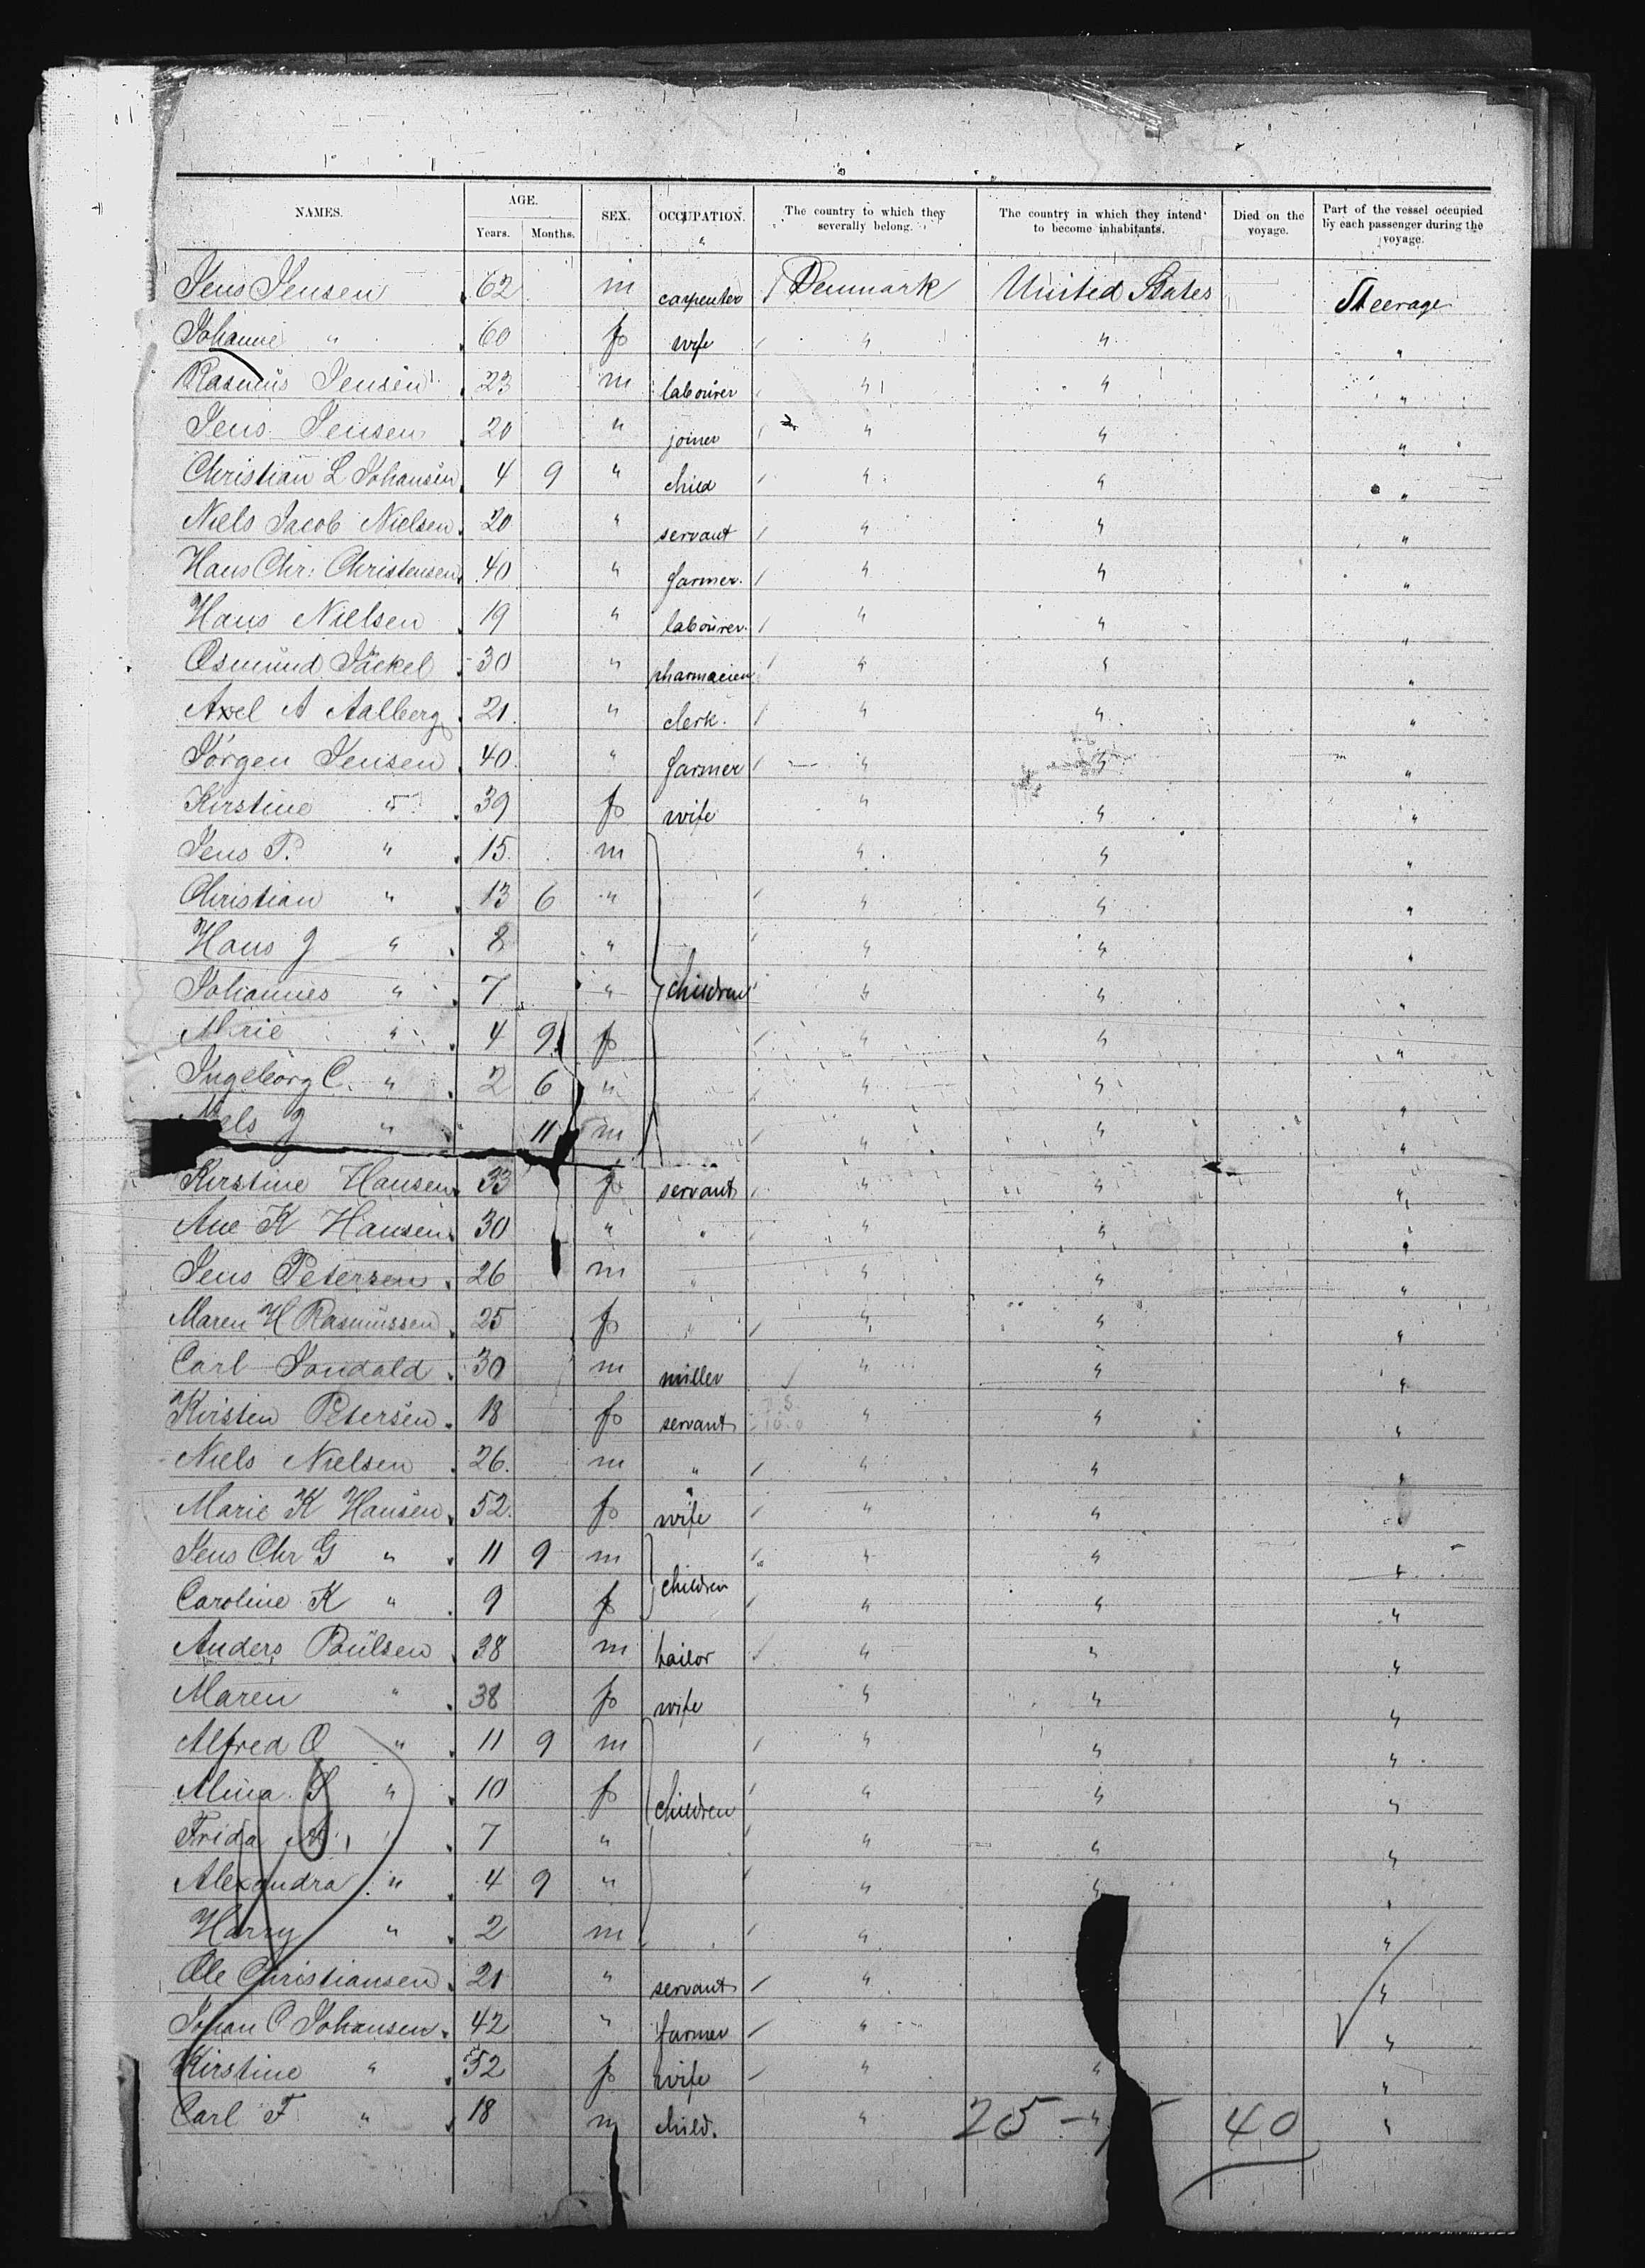 NAMES. AGE. SEX. OCCUPATION. The country to which they severally belong. The country in which they intend to become inhabitants. Died on the voyage. Part of the vessel occupied by each passenger during the voyage.
Years. Months.
Jens Jensen 62 m carpenter Denmark United States Steerage
Johanne " 60 f wife " " "
Rasmus Jensen 23 m labourer " " "
Jens Jensen 20 " joiner " " "
Christian L Johansen 4 9 " child " " "
Niels Jacob Nielsen 20 " servant " " "
Hans Chr: Christensen 40 " farmer " " "
Hans Nielsen 19 " labourer " " "
Osmund Jäckel 30 " pharmacien " " "
Axel A Aalberg 21 " clerk " " "
Jörgen Jensen 40 " farmer " " "
Kirstine " 39 f wife " " "
Jens P. " 15 m " " "
Christian " 13 6 " " " "
Hans J " 8 " " " "
Johannes " 7 " children " " "
Marie " 4 9 f " " "
Ingeborg C. " 2 6 " " " "
Niels J " 11 m " " "
Kirstine Hansen 33 f servant " " "
Ane K Hansen 30 " " " " "
Jens Petersen 26 m " " " "
Maren H Rasmussen 25 f " " " "
Carl 30 m miller " " "
Kirsten Petersen 18 f servant " " "
Niels Nielsen 26 m " " " "
Marie K Hansen 52 f wife " " "
Jens Chr G " 11 9 m children " " "
Caroline K " 9 f " " "
Anders Poulsen 38 m tailor " " "
Maren " 38 f wife " " "
Alfred O " 11 9 m " " "
Alina S " 10 f children " " "
Frida M " 7 " " " "
Alexandra " 4 9 " " " "
Harry " 2 m " "
Ole Christiansen 21 " servant " "
Johan C Johansen 42 " farmer " "
Kirstine " 52 f wife " " "
Carl F " 18 m child. " " "
40